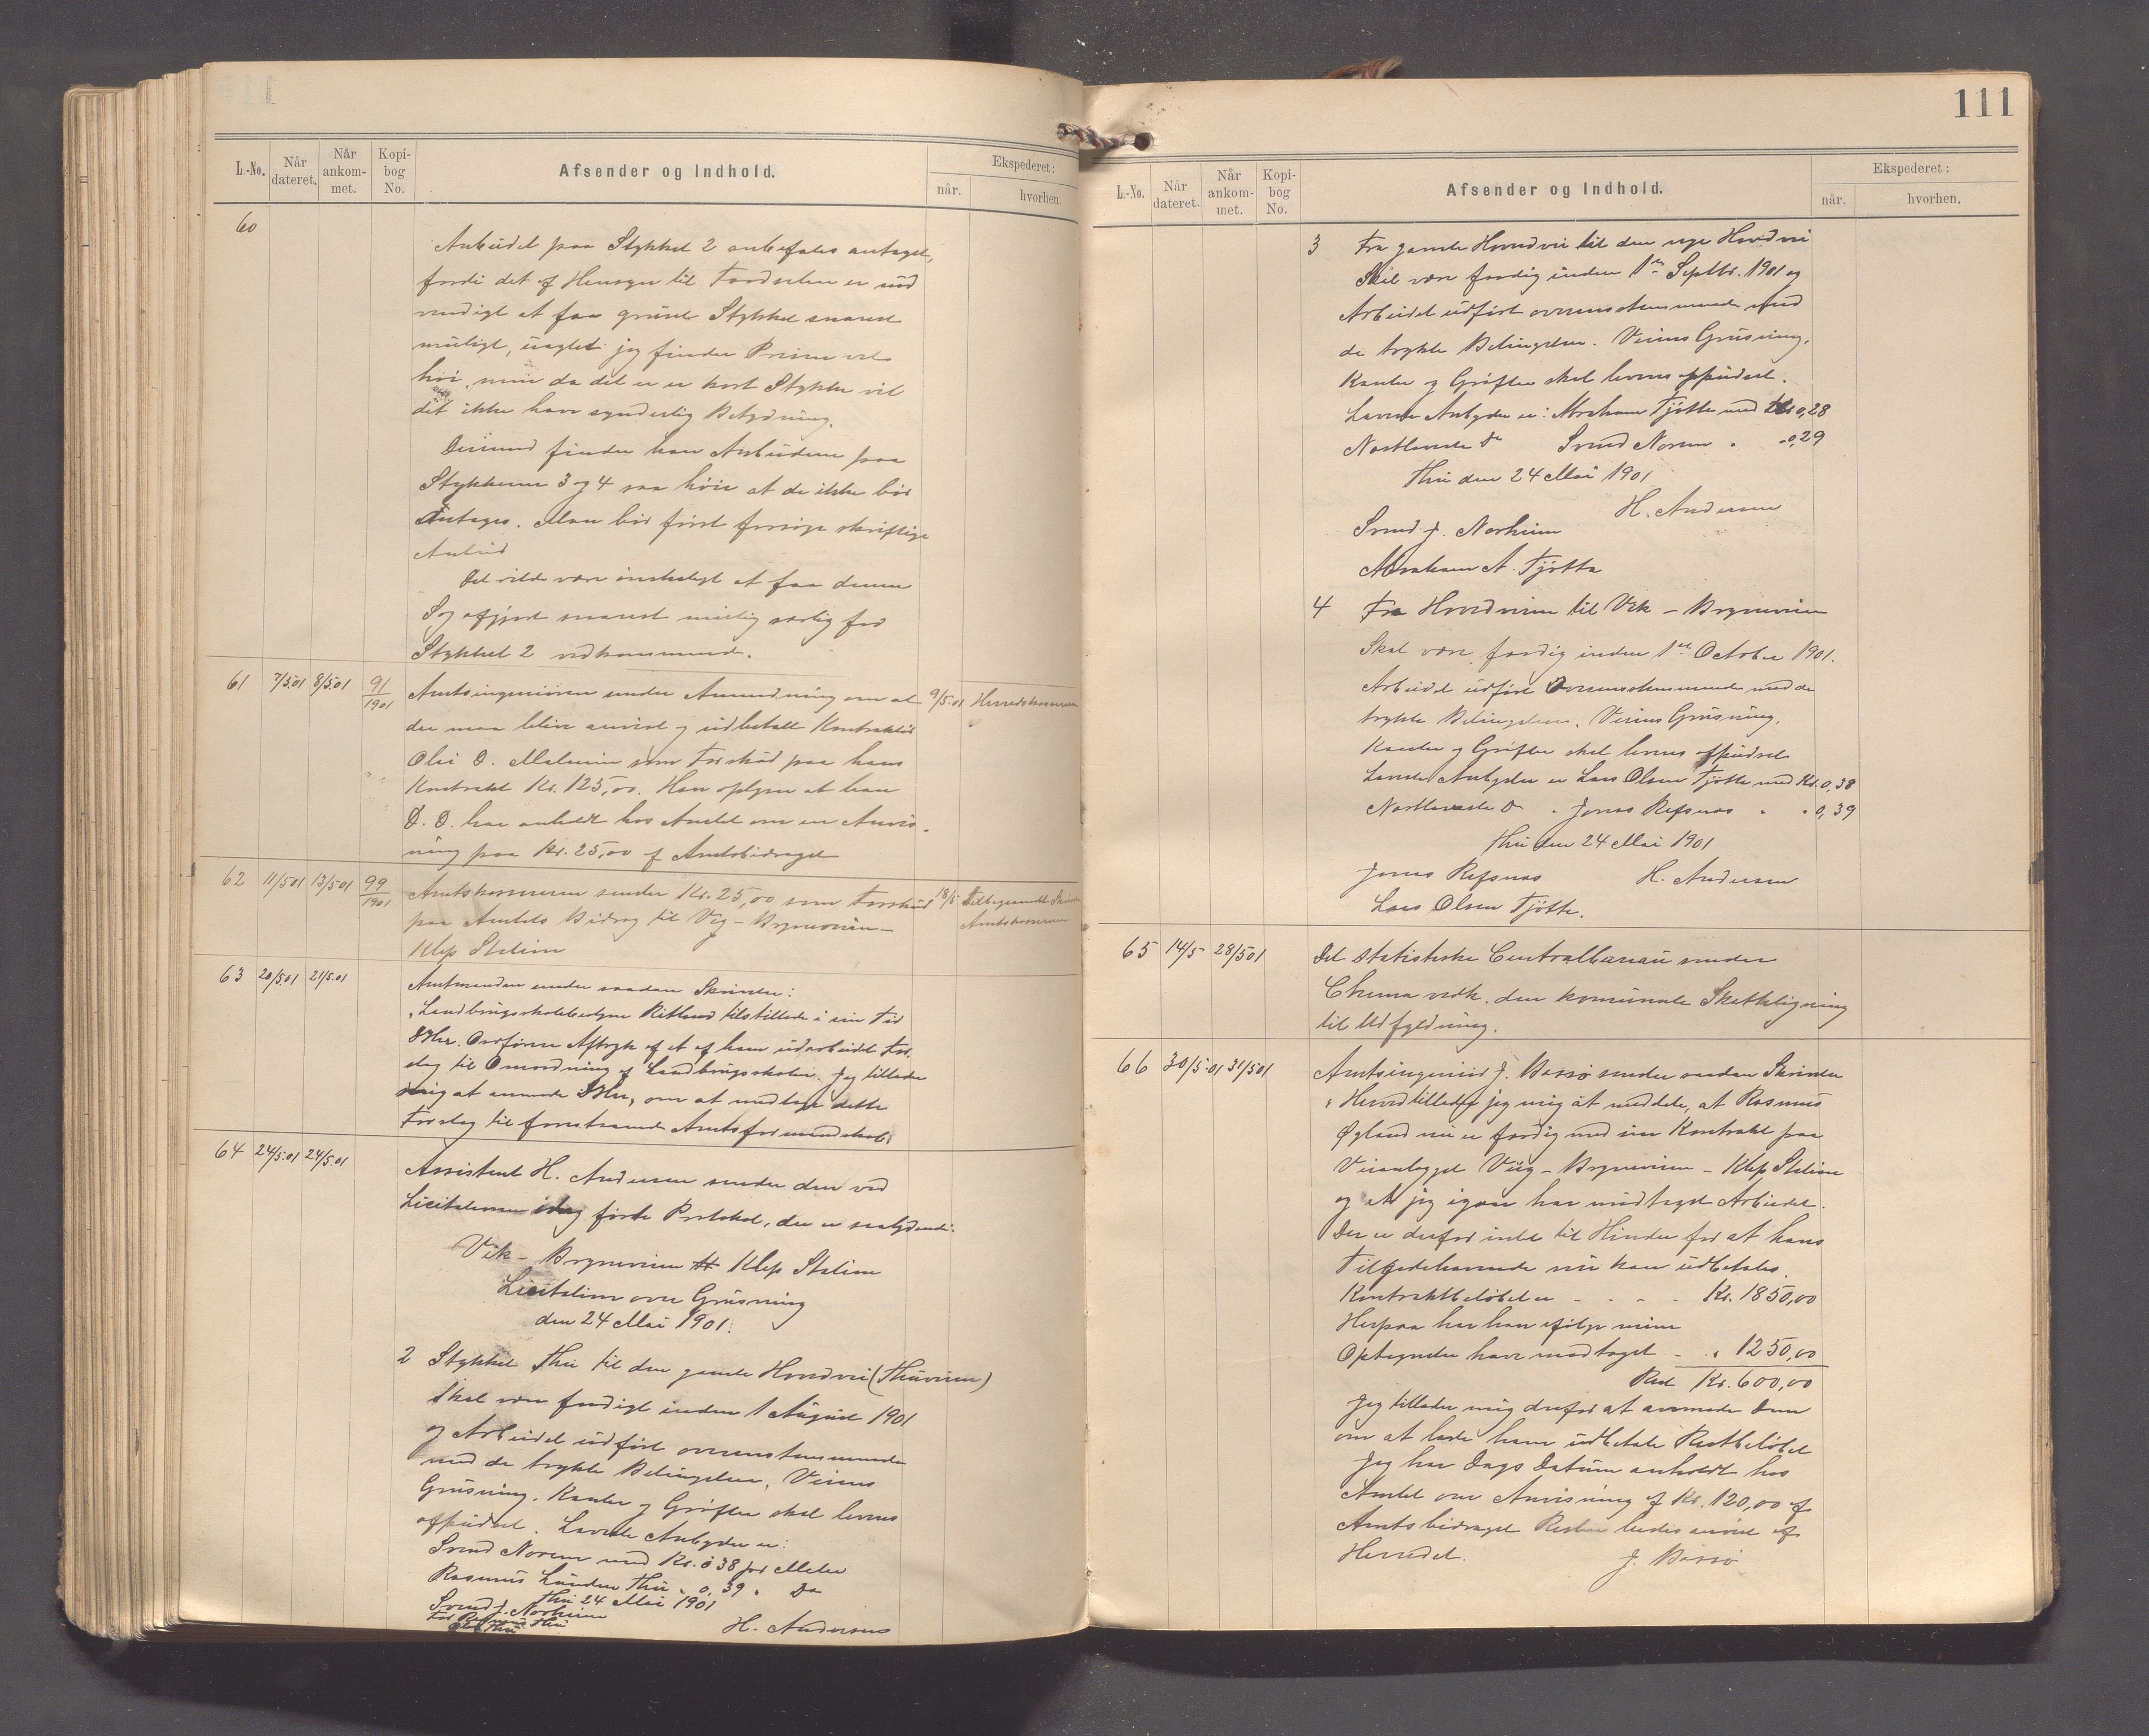 L.-No.
Når dateret.
Når ankom-met.
Kopi-bog No.
Afsender og Indhold.
Ekspederet:
når.
hvorhen.
60
Anbudet paa Stykket 2 anbefales antaget,
fordi det af Hensyn til Færdselen er nød
vendigt at faa gruset Stykket snarest
muligt, uagtet jeg finder Prisen vel
høi, men da det er et kort Stykke vil
det ikke have synderlig Betydning.
Derimod finder han Anbudene paa
Stykkerne 3 og 4 saa høie at de ikke bør
antages. Man bør først forsøge skriftlige
Anbud
Det vilde være ønskeligt at faa denne
Sag afgjort snarest mulig særlig for
Stykket 2 vedkommende.
61 7/5.01 8/5.01 91/1901
Amtsingeniøren sender Anmodning om at
der maa blive anvist og udbetalt Kontraktør
Oli O. Malmin som Forskud paa hans
Kontrakt Kr. 125,00. Han oplyser at han
D. D. har anholdt hos Amtet om en Anvis-
ning paa Kr. 25,00 af Amtsbidraget
9/5.01 Herredskassereren
62 11/5 01 13/5 01 99/1901
Amtskassereren sender Kr. 25,00 som Forskud
paa Amtets Bidrag til Vig - Bryneveien -
Klep Station
18/5 Tilbagesendt
Amtskassereren
63 20/5.01 21/5.01
Amtmanden sender saadan Skrivelse:
"Landbrugsskolebestyrer Retland tilstillede i sin Tid
DHrr. Ordførere Aftryk af et af ham udarbeidet For
slag til Omordning af Landbrugsskolen. Jeg tillader
mig at anmode DHrr, om at medtage dette
Forslag til forestaaende Amtsformandskab.
64 24/5.01 24/5.01
Assistent H. Andersen sender den ved
Licitationen idag førte Protokol, der er saalydende:
Vik - Bryneveien Klep Station
Licitation over Grusning
den 24 Mai 1901.
2 Stykket Thu til den gamle Hovedvei (Thuveien)
Skal være færdigt inden 1 August 1901
og Arbeidet udført overenstemmende
med de trykte Betingelser, Veiens
Grusning, Kanter og Grøfter skal leveres
afpudset. Laveste Anbyder er:
Svend Norem med Kr. 0 38 per Meter
Rasmus Lunden Thu " 0,39 " Do
Thu 24 Mai 1901
Svend J. Norheim
H. Andersen
111
L.-No.
Når dateret.
Når ankom-met.
Kopi-bog No.
Afsender og Indhold.
Ekspederet:
når.
hvorhen.
3 Fra gamle Hovedvei til den nye Hovedvei
Skal være færdig inden 1ste Septbr. 1901 og
Arbeidet udført overensstemmende med
de trykte Betingelser. Veiens Grusning,
Kanter og Grøfter skal leveres afpudset.
Laveste Anbyder er: Abraham Tjøtta med Kr 0,28
Næstlaveste Do Svend Norem " " 0,29
Thu den 24 Mai 1901
H. Andersen
Svend J. Norheim
Abraham A. Tjøtta
4 Fra Hovedveien til Vik - Bryneveien
Skal være færdig inden 1ste October 1901.
Arbeidet udført Overensstemmende med de
trykte Betingelser, Veiens Grusning,
Kanter og Grøfter skal leveres afpudset
Laveste Anbyder er Lars Olsen Tjøtta med Kr. 0,38
Næstlaveste Do " Jonas Refsnæs " " 0,39
Thu den 24 Mai 1901
Jonas Refsnæs H. Andersen
Lars Olsen Tjøtta.
65 14/5 28/5 01
Det statistiske Centralbureau sender
Skema vedk. den komunale Skatteligning
til Udfyldning.
66 30/5.01 31/5 01
Amtsingeniør J. Bassø sender saadan Skrivelse
"Herved tillader jeg mig at meddele, at Rasmus
Øgland nu er færdig med sin Kontrakt paa
Veianlægget Viig - Bryneveien - Klep Station
og at jeg igaar har modtaget Arbeidet.
Der er derfor intet til Hinder for at hans
Tilgodehavende nu kan udbetales.
Kontraktbeløbet er - - - - Kr. 1850,00
Herpaa har han ifølge mine
Optegnelser have modtaget - " 1250,00
Rest Kr. 600,00
Jeg tillader mig derfor at anmode Dem
om at lade ham udbetale Restbeløbet
Jeg har Dags Datum anholdt hos
Amtet om Anvisning af Kr. 120,00 af
Amtsbidraget Resten bedes anvist af
Herredet. J. Bassø